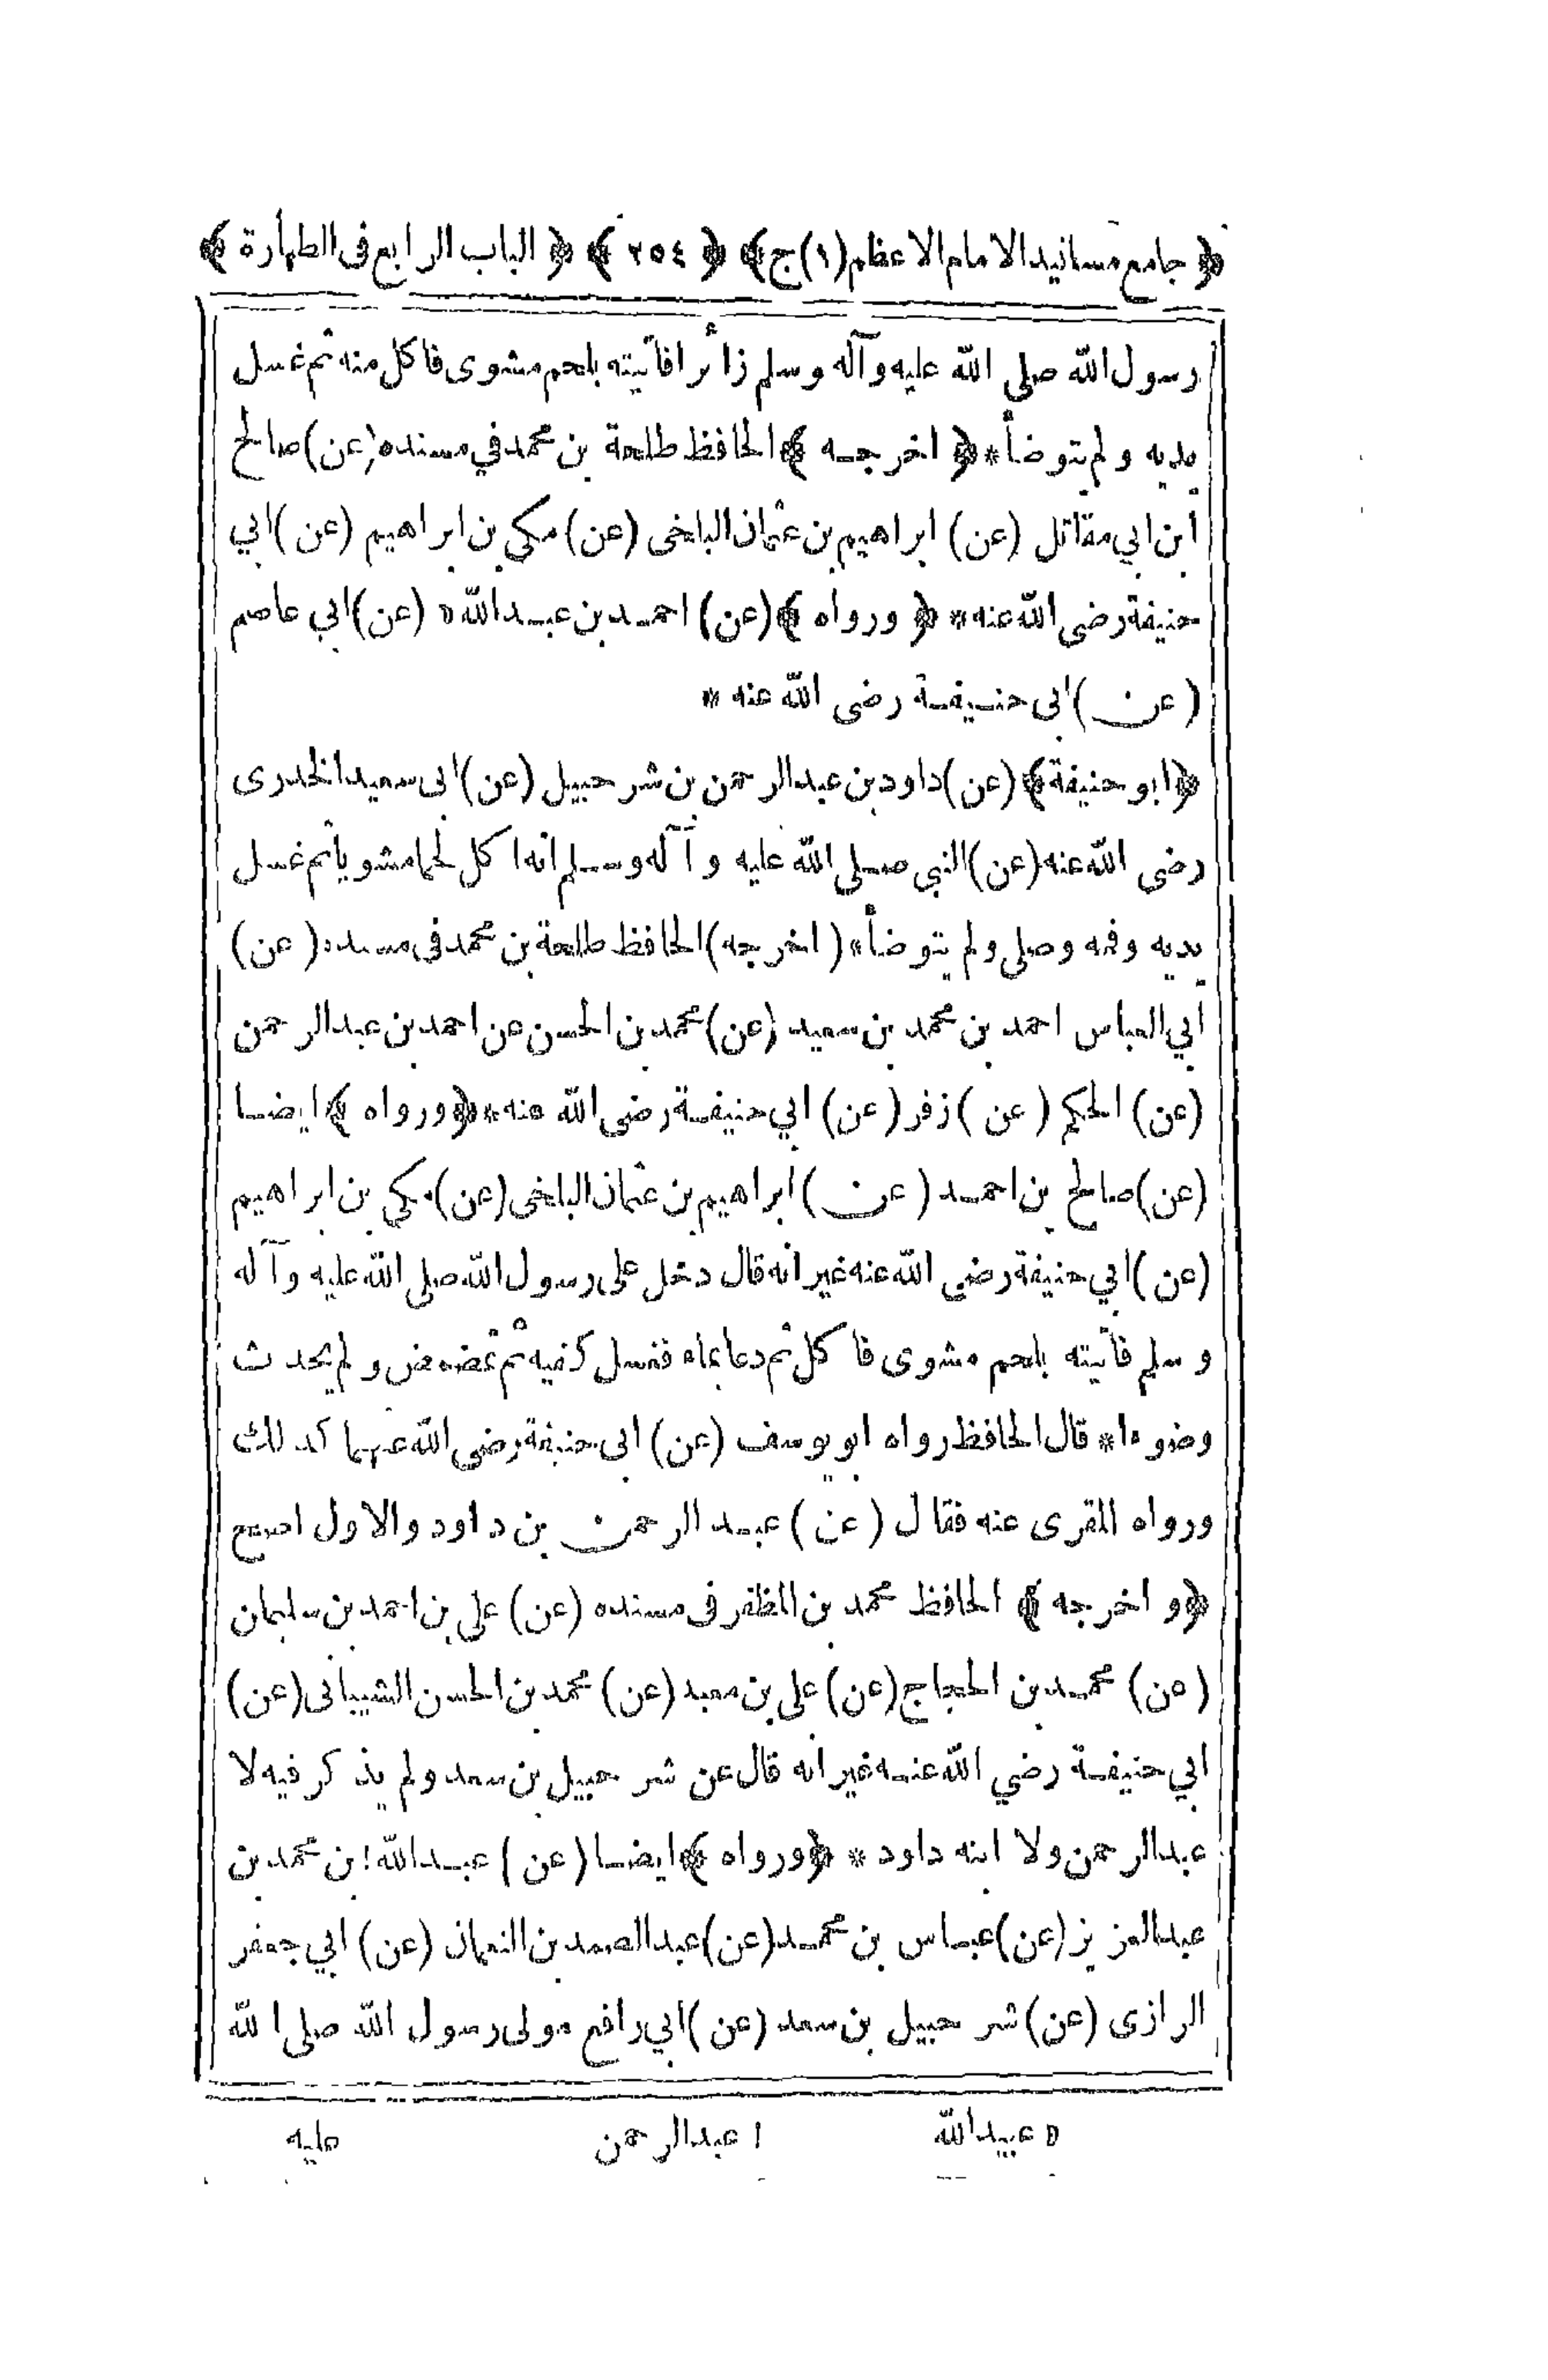 ﴿ جامع مسانيد الامام الاعظم (١) ج ﴾ ﴿ ٢٥٤ ﴾ ﴿ الباب الرابع فى الطهارة ﴾
رسول الله صلى الله عليه وآله وسلم زائرا فأتيته بلحم مشوى فاكل منه ثم غسل
يديه ولم يتوضأ * ﴿ اخرجه ﴾ الحافظ طلحة بن محمد في مسنده (عن) صالح
ابن ابي مقاتل (عن) ابراهيم بن عثمان البلخى (عن) مكي بن ابراهيم (عن) ابي
حنيفة رضى الله عنه * ﴿ ورواه ﴾ (عن) احمد بن عبدالله ٥ (عن) ابي عاصم
(عن) ابى حنيفة رضى الله عنه *
﴿ ابو حنيفة ﴾ (عن) داود بن عبدالرحمن بن شرحبيل (عن) ابى سعيد الخدرى
رضى الله عنه (عن) النبي صلى الله عليه وآله وسلم انه اكل لحما مشويا ثم غسل
يديه وفمه وصلى ولم يتوضأ * (اخرجه) الحافظ طلحة بن محمد فى مسنده (عن)
ابي العباس احمد بن محمد بن سعيد (عن) محمد بن الحسن عن احمد بن عبدالرحمن
(عن) الحكم (عن) زفر (عن) ابي حنيفة رضى الله عنه * ﴿ ورواه ﴾ ايضا
(عن) صالح بن احمد (عن) ابراهيم بن عثمان البلخى (عن) مكي بن ابراهيم
(عن) ابي حنيفة رضى الله عنه غير انه قال دخل على رسول الله صلى الله عليه وآله
وسلم فأتيته بلحم مشوى فاكل ثم دعا بماء فغسل كفيه ثم تمضمض ولم يحدث
وضوءا * قال الحافظ رواه ابو يوسف (عن) ابى حنيفة رضى الله عنهما كذلك
ورواه المقرى عنه فقال (عن) عبد الرحمن بن داود والاول اصح
﴿ واخرجه ﴾ الحافظ محمد بن المظفر فى مسنده (عن) على بن احمد بن سليمان
(عن) محمد بن الحجاج (عن) على بن معبد (عن) محمد بن الحسن الشيبانى (عن)
ابي حنيفة رضي الله عنه غير انه قال عن شرحبيل بن سعد ولم يذكر فيه لا
عبدالرحمن ولا ابنه داود * ﴿ ورواه ﴾ ايضا (عن) عبدالله ا بن محمد بن
عبدالعزيز (عن) عباس بن محمد (عن) عبدالصمد بن النعمان (عن) ابي جعفر
الرازى (عن) شرحبيل بن سعد (عن) ابي رافع مولى رسول الله صلى الله
٥ عبيدالله ا عبدالرحمن عليه